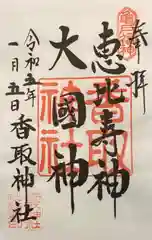 奉拝
恵比寿神
大國神
令和五年
一月五日
香取神社
香取
神社